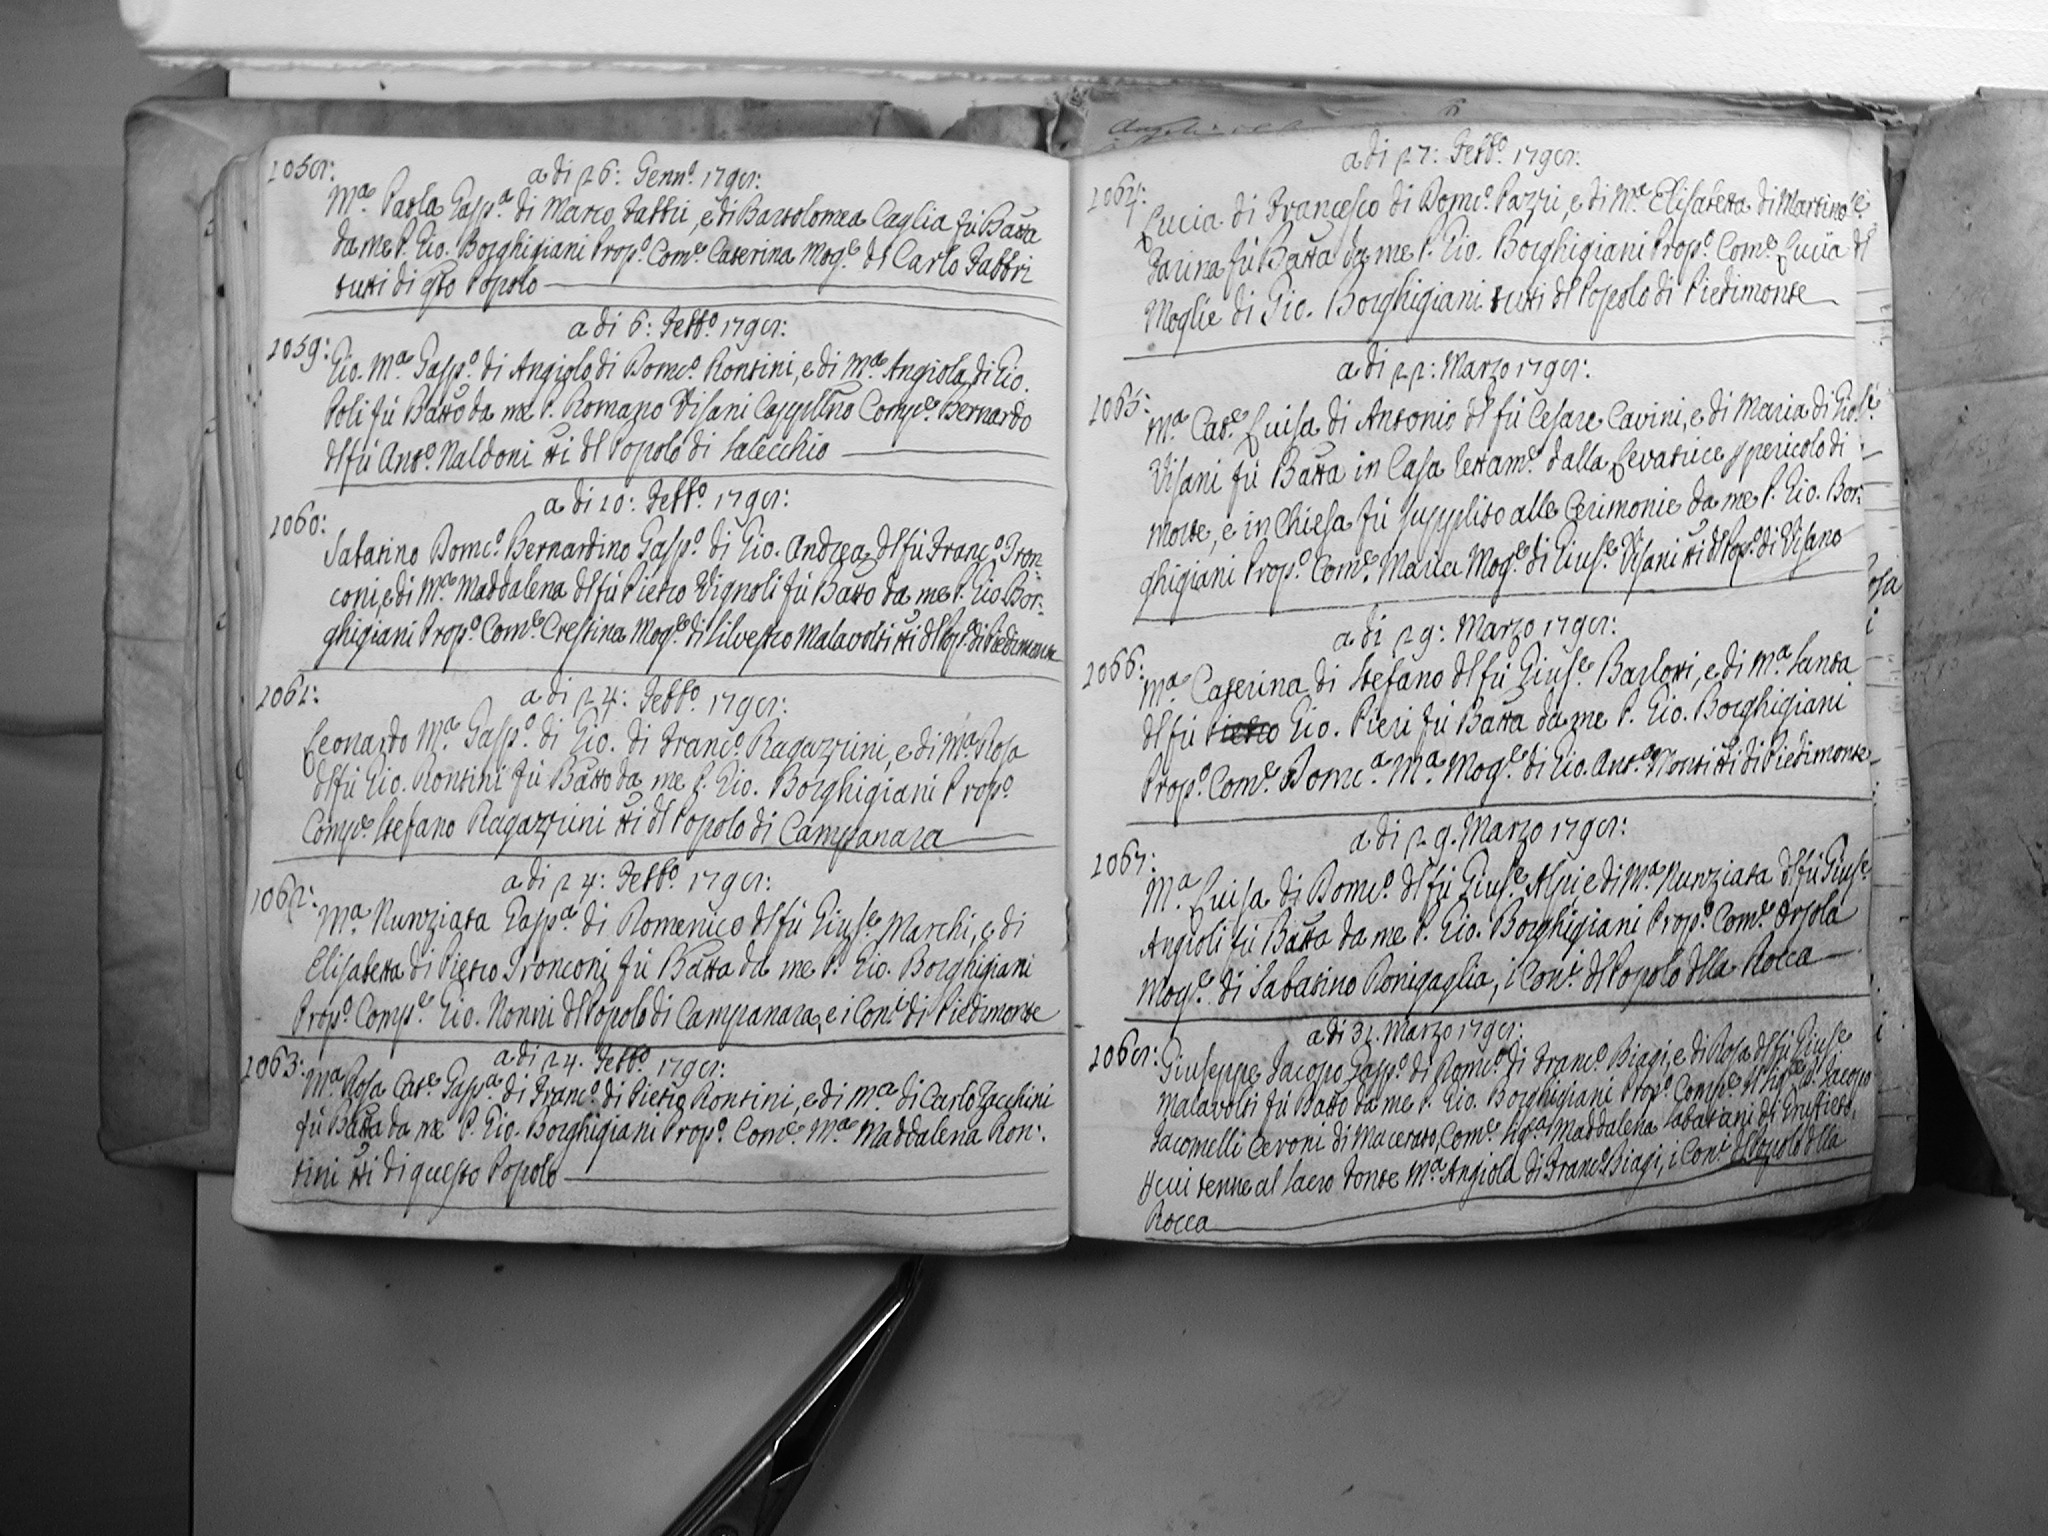 1058:
a dì 26: Genn.º 1798:
M.ª Paola Gasp.ª di Marco Fabbri, e di Bartolomea Caglia fù Batta
da me P. Gio. Borghigiani Prop.º Com.e Caterina Mog.e dl Carlo Fabbri
tutti di qsto Popolo
a dì 6: Febb.º 1798:
1059:
Gio. M.ª Gasp.º di Angiolo di Dom.co Rontini, e di M.ª Angiola di Gio.
Poli fù Batto da me P. Romano Visani Cappllno Comp.e Bernardo
dl fù Ant.º Naldoni tti dl Popolo di Salecchio
a dì 10: Febb.º 1798:
1060:
Sabatino Dom.co Bernardino Gasp.º di Gio. Andrea dl fù Franc.º Tron:
coni, e di M.ª Maddalena dl fù Pietro Vignoli fù Batto da me P. Gio. Bor:
ghigiani Prop.º Com.e Crestina Mog.e di Silvestro Malavolti tti dl Pop.º di Piedimonte
1061:
a dì 24: Febb.º 1798:
Leonardo M.ª Gasp.º di Gio. di Franc.º Ragazzini, e di M.ª Rosa
dl fù Gio. Rontini fù Batto da me P. Gio. Borghigiani Prop.º
Comp.e Stefano Ragazzini tti dl Popolo di Campanara
a dì 24: Febb.º 1798:
1062:
M.ª Nunziata Gasp.ª di Domenico dl fù Gius.e Marchi, e di
Elisabetta di Pietro Tronconi fù Batta da me P. Gio. Borghigiani
Prop.º Comp.e Gio. Nonni dl Popolo di Campanara, e i Con.i di Piedimonte
a dì 24. Febb.º 1798:
1063:
M.ª Rosa Cat.e Gasp.ª di Franc.º di Pietro Rontini, e di M.ª di Carlo Zacchini
fù Batta da me P. Gio. Borghigiani Prop.º Com.e M.ª Maddalena Ron:
tini tti di questo Popolo
a dì 27: Febb.º 1798:
1064:
Lucia di Francesco di Dom.co Pazzi, e di M.ª Elisabetta di Martino
Farina fù Batta da me P. Gio. Borghigiani Prop.º Com.e Lucia
Moglie di Gio. Borghigiani tutti dl Popolo di Piedimonte
a dì 22: Marzo 1798:
1065:
M.ª Cat.e Luisa di Antonio dl fù Cesare Cavini, e di Maria di Gios.e
Visani fù Batta in Casa lettam.e dalla Levatrice p pericolo di
morte, e in Chiesa fù supplito alle Cerimonie da me P. Gio. Bor:
ghigiani Prop.º Com.e Maria Mog.e di Gius.e Visani tti dl Pop.º di Visano
a dì 29: Marzo 1798:
1066:
M.ª Caterina di Stefano dl fù Gius.e Barlotti, e di M.ª Santa
dl fù Pietro Gio. Pieri fù Batta da me P. Gio. Borghigiani
Prop.º Com.e Dom.ca M.ª Mog.e di Gio. Ant.º Monti tti di Piedimonte
a dì 29. Marzo 1798:
1067:
M.ª Luisa di Dom.co dl fù Gius.e Alpi, e di M.ª Nunziata dl fù Gius.e
Angioli fù Batta da me P. Gio. Borghigiani Prop.º Com.e Orsola
Mog.e di Sabatino Ronigaglia, i Con.i dl Popolo dlla Rocca
a dì 31. Marzo 1798:
1068:
Giuseppe Jacopo Gasp.º di Dom.co di Franc.º Biagi, e di Rosa dl fù Gius.e
Malavolti fù Batto da me P. Gio. Borghigiani Prop.º Comp.e Jacopo
Jacomelli Cervoni di Macerato, Com.e Sig.ra Maddalena Sabatani di
cui tenne al Sacro Fonte M.ª Angiola di Franc.º Biagi, i Con.i dl Popolo dlla
Rocca